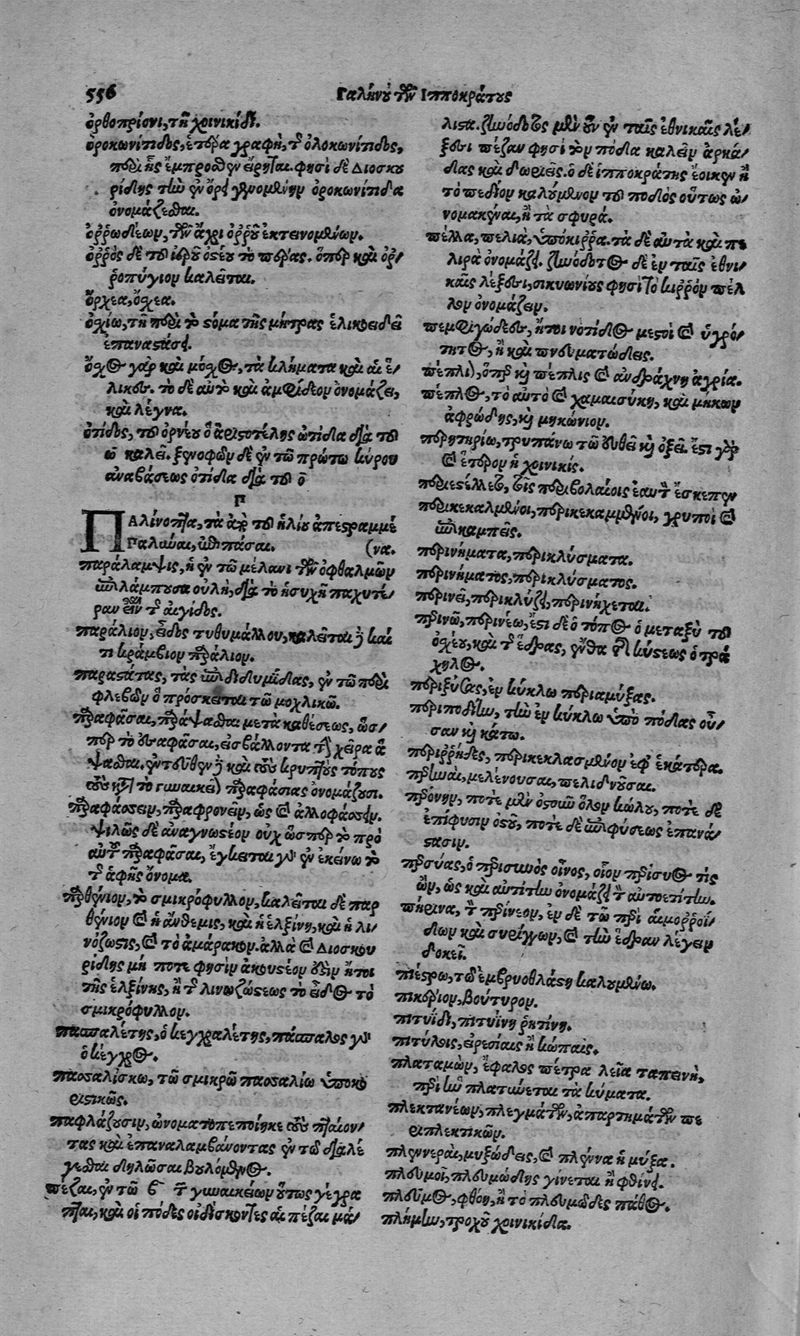 556 Γαλήνου τῶν Ἱπποκράτους
ὀρθοπρίονι, τῇ χοινικίδι.
ὀροκωνίτιδος, ἑτέρα γραφὴ, τ ὁλοκωνίτιδος,
περὶ ἧς ἔμπροσθεν εἴρηται. φησὶ δὲ Διοσκου
ρίδης τὴν ἐν ὄρει γινομένην ὀροκωνίτιδα
ὀνομάζεσθαι.
ὀῤῥωδέων, τῶν ἄχρι ὄῤῥου ἐκτεινομένων.
ὄῤῥος δὲ τοῦ ἱεροῦ ὀστέου τὸ πέρας. ὅπερ καὶ ὀῤ
ροπύγιον καλεῖται.
ὄρχεα, ὄσχεα.
ὀσχίῳ, τῇ περὶ τὸ στόμα τῆς μήτρας ἑλικοειδεῖ
ἐπαναστάσει.
ὄσχος γὰρ καὶ μόσχος, τὰ κλήματα καὶ αἱ ἕ-
λικες. τὸ δὲ αὐτὸ καὶ ἀμφίδεον ὀνομάζει,
καὶ λέγνα.
ὀτίδος, τοῦ ὀρνέου ὃ ἀριστοτέλης ὠτίδα διὰ τοῦ
ω καλεῖ. ξενοφῶν δὲ ἐν τῷ πρώτῳ κύρου
ἀναβάσεως ὀτίδα διὰ τοῦ ο
Π
ΠΑλίνοπτα, τὰ ἀπὸ τοῦ ἡλίου ἀπεστραμμέ
Γαλαῖαι, (να.
παράλαμψις, ἡ ἐν τῷ μέλανι τῶν ὀφθαλμῶν
ἐπιλάμπουσα οὐλὴ, διὰ τὸ ἡσυχῇ παχυτέ-
ραν εἶναι τ αἰγίδος.
παράλιον, εἶδος τιθυμάλλου, καλεῖται καί
τι κράμβιον παράλιον.
παραστάτας, τὰς ἐπιδιδυμίδας, ἐν τῷ περὶ
φλεβῶν ὃ πρόσκειται τῷ μοχλικῷ.
παραφᾶσαι, παράψασθαι μετὰ καθέσεως, ὥσ-
περ τὸ διαφᾶσαι, εἰσβάλλοντα χεῖρα ἅ
ψασθαι. ἐντεῦθεν καὶ τοὺς κρυπτοὺς τόπους
τοὺς κατὰ τὸ γυναικεῖον παραφάσιας ὀνομάζουσι.
παραφάσσειν, παραφρονεῖν, ὡς καὶ ἀλλοφάσσειν.
ψιλῶς δὲ ἀναγνωστέον οὐχ ὥσπερ τὸ πρὸ
αὐτοῦ παραφᾶσαι, ἔγκειται γὰρ ἐν ἐκείνῳ τὸ
τ ἁφῆς ὄνομα.
παρθένιον, τὸ σμικρόφυλλον, καλεῖται δὲ παρ
θένιον καὶ ἡ ἄνθεμις, καὶ ἡ ἑλξίνη, καὶ ἡ λι-
νόζωστις, καὶ τὸ ἀμάρακον. ἀλλὰ καὶ Διοσκου
ρίδης μή ποτε φησὶν ἀκουστέον νῦν ἤτοι
τῆς ἑλξίνης, ἢ τ λινοζώστεως τὸ εἶδος τὸ
σμικρόφυλλον.
πασπαλέτης, ὁ κεγχραλέτης, πάσπαλος γὰρ
ὁ κέγχρος.
πασσαλίσκῳ, τῷ σμικρῷ πασσαλίῳ ὑποκο
ριστικῶς.
παφλάζουσιν, ὠνοματοπεποίηκε τοὺς πταίον-
τας καὶ ἐπαναλαμβάνοντας ἐν τῷ διαλέ
γεσθαι δηλῶσαι βουλόμενος.
πέζαι, ἐν τῷ β τ γυναικείων οὕτως γέγρα
πται, καὶ οἱ πόδες οἰδίσκονται αἱ πέζαι μά-
λιστα. ζηνόδοτος μὲν οὖν ἐν ταῖς ἐθνικαῖς λέ-
ξεσι πέζαν φησὶ τὸν πόδα καλεῖν ἀρκά-
δας καὶ δωριεῖς. ὁ δὲ ἱπποκράτης ἔοικεν ἢ
τὸ πεδίον καλούμενον τοῦ ποδὸς οὕτως ὠ-
νομακέναι, ἢ τὰ σφυρά.
πέλλα, πελιὰ, ὑπόκιῤῥα. τὰ δὲ αὐτὰ καὶ πε
λιρὰ ὀνομάζει. ζηνόδοτος δὲ ἐν ταῖς ἐθνι-
καῖς λέξεσι, σικυωνίους φησὶ τὸ κιῤῥὸν πέλ
λον ὀνομάζειν.
πεμφιγώδεες, ἤτοι νοτίδος μεστοὶ καὶ ὑγρό-
τητος, ἢ καὶ πνευματώδεις.
πέπλιον, ὅπερ καὶ πέπλις καὶ ἀνδράχνη ἀγρία.
πέπλος, τὸ αὐτὸ καὶ χαμαισύκη, καὶ μήκων
ἀφρώδης, καὶ μηκώνιον.
περητηρίῳ, τρυπάνῳ τῷ εὐθεῖ καὶ ὀξεῖ. ἔστι γὰρ
καὶ ἕτερον ἡ χοινικίς.
περιεστέλλετο, τοῖς περιβολαίοις ἑαυτὸ ἔσκεπεν
περικεκαλμένοι, περικεκαμμένοι, χρυποὶ καὶ
ἐπικαμπεῖς.
περινήματα, περικλύσματα.
περινήματος, περικλύσματος.
περινεῖ, περικλύζει, περινήχεται.
περινῷ, περινέῳ, ἔστι δὲ ὁ τόπος ὁ μεταξὺ τοῦ
ὀσχέου, καὶ τ ἕδρας, ἔνθα κύστεως ὁ τρά
χηλος.
περιξύσας, ἐν κύκλῳ περιαμύξας.
περιποδίην, τὴν ἐν κύκλῳ ὑπὸ πόδας οὖ-
σαν καὶ κάτω.
περιῤῥηδὲς, περικεκλασμένον ἐφ ἑκάτερα.
περκναὶ, μελένουσαι, πελιδνοῦσαι.
περόνην, ποτὲ μὲν ὀστοῦν ὅλον κώλου, ποτὲ δὲ
ἐπίφυσιν ὀστοῦ, ποτὲ δὲ ἐπιφύσεως ἐπανά-
στασιν.
περσύας, ὁ περυσινὸς οἶνος, οἷον περίσυος τὶς
ὢν, ὡς καὶ αὐτίτην ὀνομάζει τ αὐτοετίτην.
πήρινα, τ περίνεον, ἐν δὲ τῷ περὶ αἱμοῤῥοΐ-
δων καὶ συρίγγων, καὶ τὴν ἕδραν λέγειν
δοκεῖ.
πιέστρῳ, τῷ ἐμβρυοθλάστῃ καλουμένῳ.
πικέριον, βούτυρον.
πιτυΐδι, πιτυΐνῃ ῥητίνῃ.
πιτύλοις, εἰρεσίαις ἢ κώπαις.
πλαταμὼν, ἔφαλος πέτρα λεία ταπεινὴ,
περὶ ἣν πλατύνεται τὰ κύματα.
πλεκτανέων, πλεγμάτων, ἀπαρτημάτων πε
ριπλεκτικῶν.
πλέννεραι, μυξώδεις, καὶ πλέννα ἡ μύξα.
πλευμοῖ, πλευμώδης γίνεται ἢ φθίνει.
πλεύμος, φθόη, ἢ τὸ πλευμῶδες πάθος.
πλήμνῃ, τροχοῦ χοινικίδα.